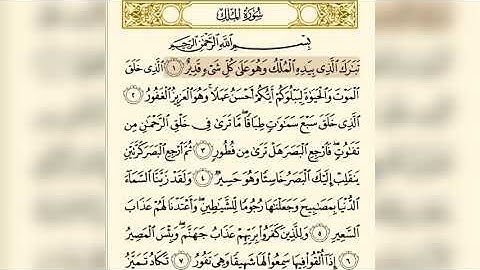 سُورَةُ المُلْكِ
بِسْمِ اللَّهِ الرَّحْمَٰنِ الرَّحِيمِ
تَبَٰرَكَ ٱلَّذِى بِيَدِهِ ٱلْمُلْكُ وَهُوَ عَلَىٰ كُلِّ شَىْءٍ قَدِيرٌ ١ ٱلَّذِى خَلَقَ
ٱلْمَوْتَ وَٱلْحَيَوٰةَ لِيَبْلُوَكُمْ أَيُّكُمْ أَحْسَنُ عَمَلًا ۚ وَهُوَ ٱلْعَزِيزُ ٱلْغَفُورُ ٢
ٱلَّذِى خَلَقَ سَبْعَ سَمَٰوَٰتٍ طِبَاقًا ۖ مَّا تَرَىٰ فِى خَلْقِ ٱلرَّحْمَٰنِ مِن
تَفَٰوُتٍ ۖ فَٱرْجِعِ ٱلْبَصَرَ هَلْ تَرَىٰ مِن فُطُورٍ ٣ ثُمَّ ٱرْجِعِ ٱلْبَصَرَ كَرَّتَيْنِ
يَنقَلِبْ إِلَيْكَ ٱلْبَصَرُ خَاسِئًا وَهُوَ حَسِيرٌ ٤ وَلَقَدْ زَيَّنَّا ٱلسَّمَآءَ
ٱلدُّنْيَا بِمَصَٰبِيحَ وَجَعَلْنَٰهَا رُجُومًا لِّلشَّيَٰطِينِ ۖ وَأَعْتَدْنَا لَهُمْ عَذَابَ
ٱلسَّعِيرِ ٥ وَلِلَّذِينَ كَفَرُوا۟ بِرَبِّهِمْ عَذَابُ جَهَنَّمَ ۖ وَبِئْسَ ٱلْمَصِيرُ
٦ إِذَآ أُلْقُوا۟ فِيهَا سَمِعُوا۟ لَهَا شَهِيقًا وَهِىَ تَفُورُ ٧ تَكَادُ تَمَيَّزُ